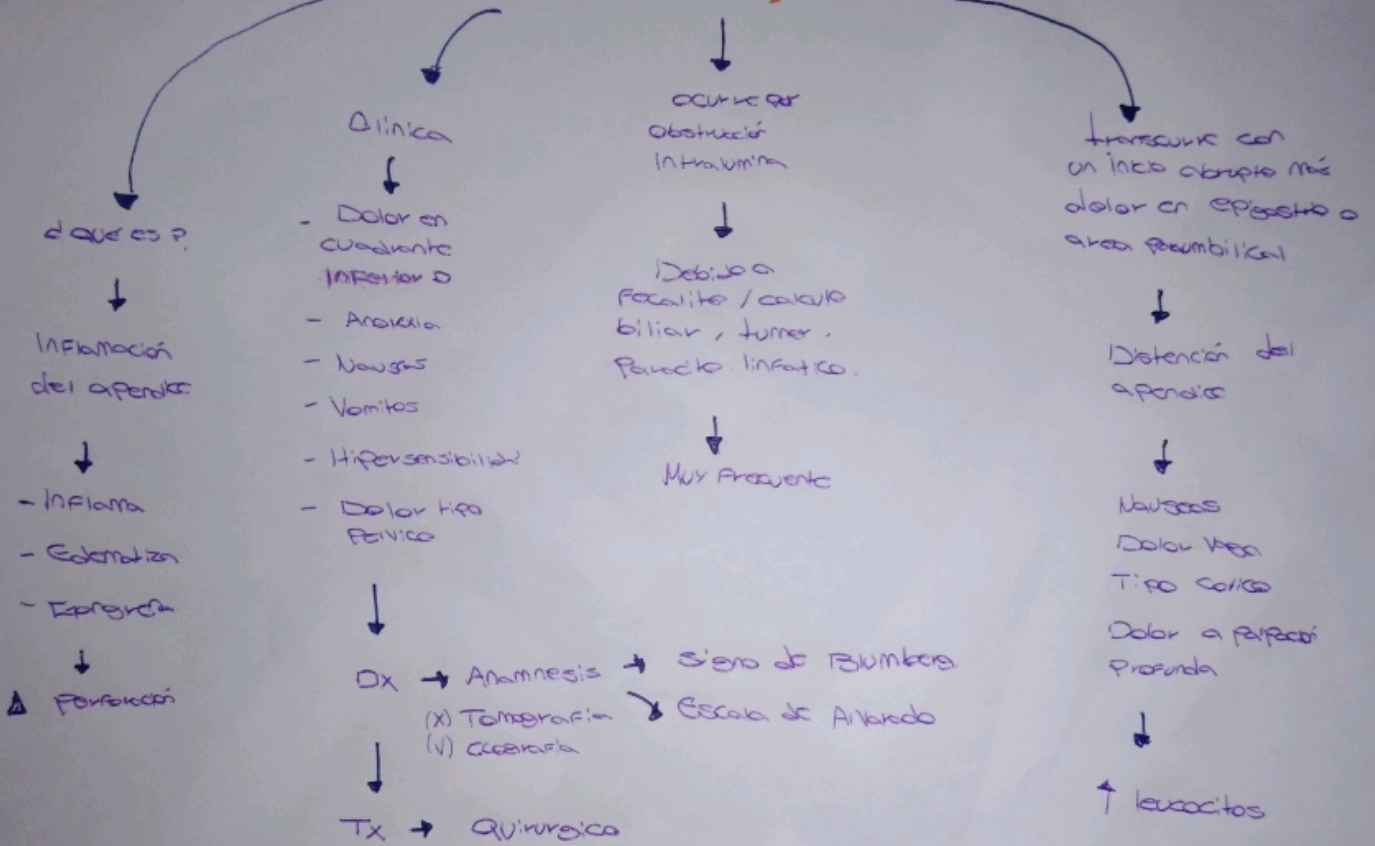 ¿Qué es?
Inflamación
del apendice
- Inflama
- Edematiza
- Engrgrena
Perforación
Clinica
- Dolor en
cuadrante
inferior D
- Anorexia
- Nauseas
- Vomitos
- Hipersensibilidad
- Dolor tipo
Pelvico
Dx → Anamnesis → Signo de Blumberg
(x) Tomografia ↘ Escala de Alvarado
(v) ecografia
Tx → Quirurgico
ocurre por
Obstrucción
Intralumina
Debido a
Fecalito / calculo
biliar, tumor,
Paracito linfatico.
Muy Frecuente
transcurre con
un inicio abrupto más
dolor en epigastrio o
area periumbilical
Distención del
apendice
Nauseas
Dolor vago
Tipo colico
Dolor a palpación
Profunda
↑ leucocitos